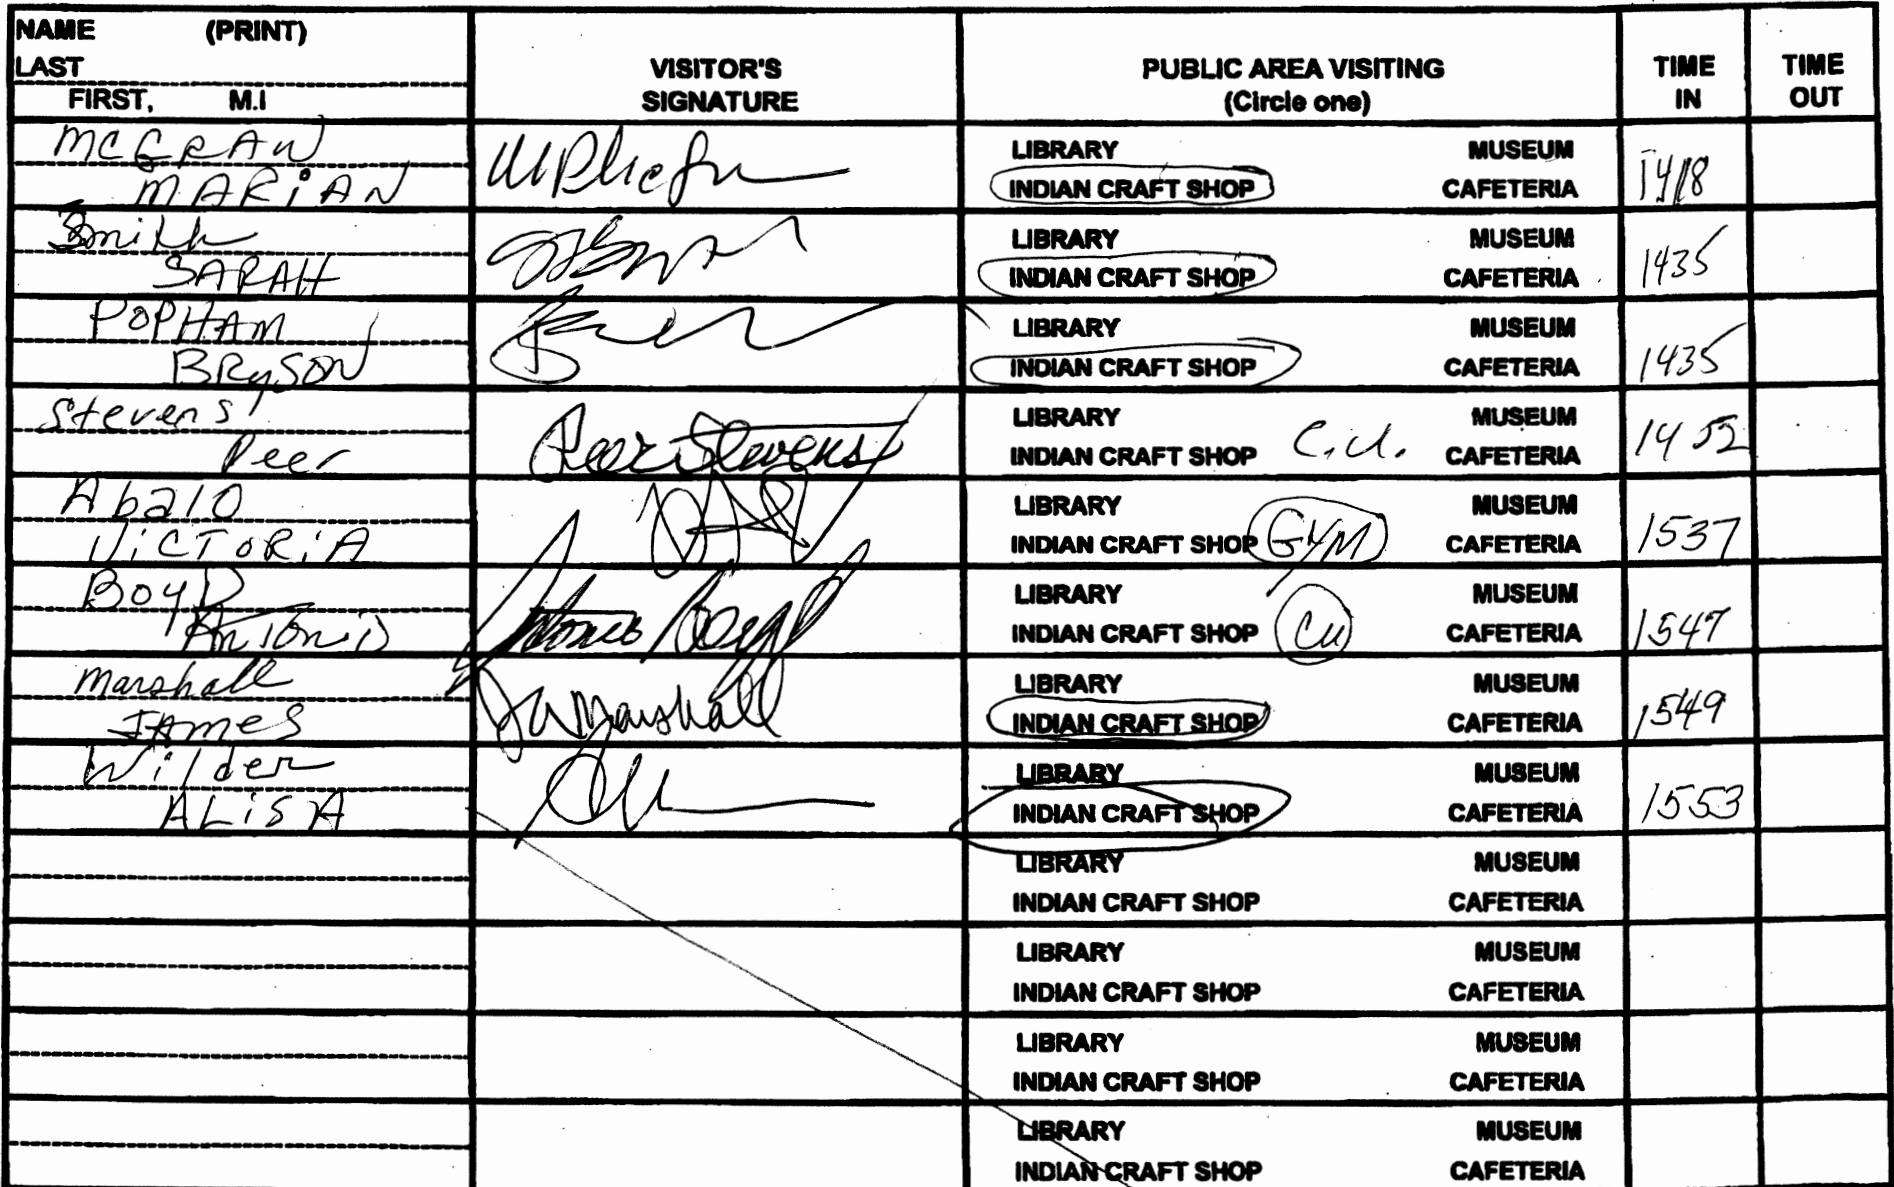 NAME (PRINT)
LAST
FIRST, M.I
VISITOR'S
SIGNATURE
PUBLIC AREA VISITING
(Circle one)
TIME
IN
TIME
OUT
MCGRAW
MARIAN
LIBRARY MUSEUM
INDIAN CRAFT SHOP CAFETERIA
1418
Smith
SARAH
LIBRARY MUSEUM
INDIAN CRAFT SHOP CAFETERIA
1435
POPHAM
BRySON
LIBRARY MUSEUM
INDIAN CRAFT SHOP CAFETERIA
1435
Stevens
Peer
Peer Stevens
LIBRARY MUSEUM
INDIAN CRAFT SHOP C.U. CAFETERIA
1452
Abalo
VICTORIA
LIBRARY MUSEUM
INDIAN CRAFT SHOP GYM CAFETERIA
1537
BOYD
ANTONIO
Antonio Boyd
LIBRARY MUSEUM
INDIAN CRAFT SHOP CU CAFETERIA
1547
Marshall
JAMES
Marshall
LIBRARY MUSEUM
INDIAN CRAFT SHOP CAFETERIA
1549
Wilder
ALiSA
LIBRARY MUSEUM
INDIAN CRAFT SHOP CAFETERIA
1553
LIBRARY MUSEUM
INDIAN CRAFT SHOP CAFETERIA
LIBRARY MUSEUM
INDIAN CRAFT SHOP CAFETERIA
LIBRARY MUSEUM
INDIAN CRAFT SHOP CAFETERIA
LIBRARY MUSEUM
INDIAN CRAFT SHOP CAFETERIA